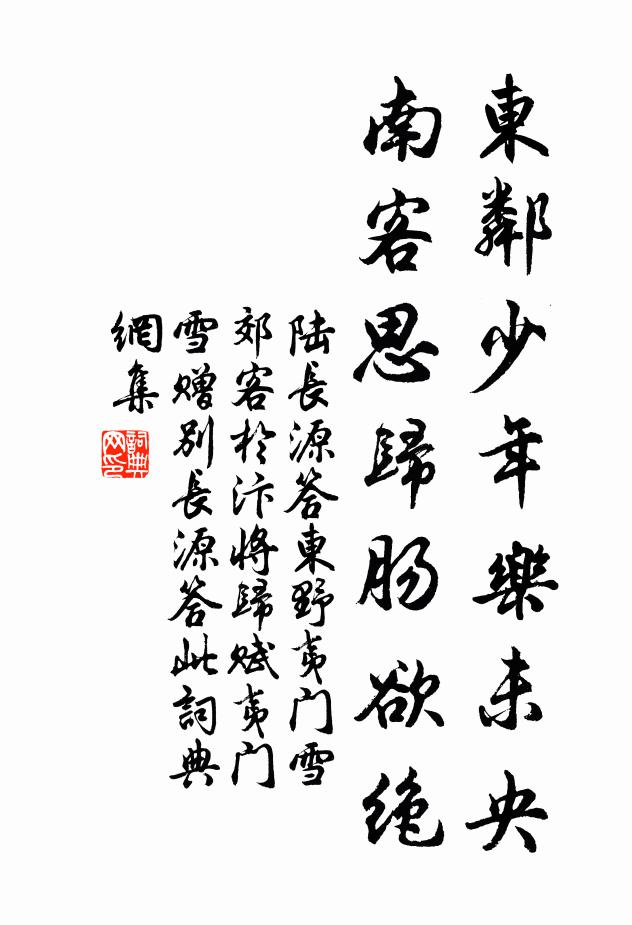 東鄰少年樂未央
南客思歸肠欲绝
陆長源答東野夷门雪
郊客於汴將歸赋夷门
雪赠别長源答此詞典
網集
詞典网印